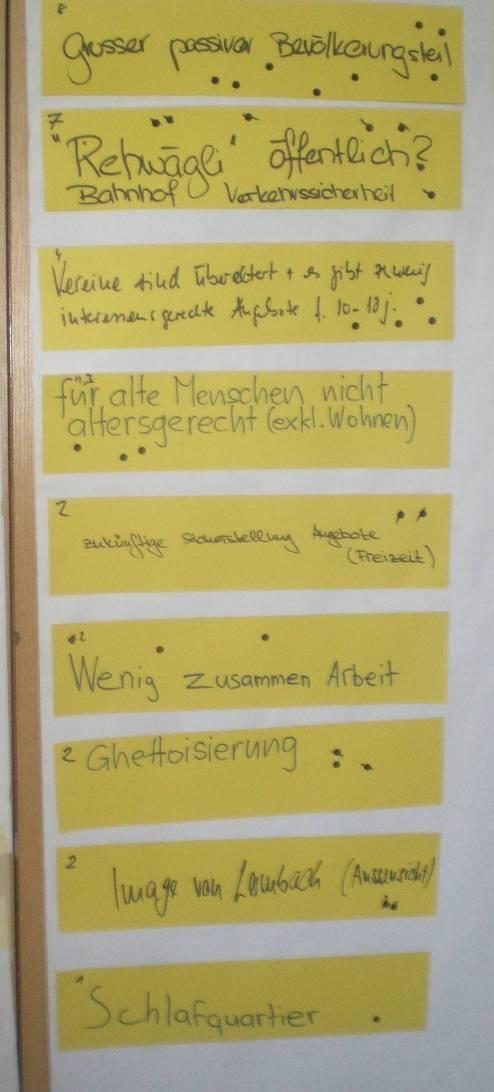 8
grosser passiver Bevölkerungsteil
7
"Rehwägli" öffentlich?
Bahnhof Verkehrssicherheit
4
Vereine sind überaltert + es gibt zu wenig
interessensgerechte Angebote f. 10-18 j.
3
für alte Menschen nicht
altersgerecht (exkl. Wohnen)
2
zukünftige Sicherstellung Angebote
(Freizeit)
2
Wenig zusammen Arbeit
2 Ghettoisierung
2
Image von Lambach (Aussensicht)
1
Schlafquartier